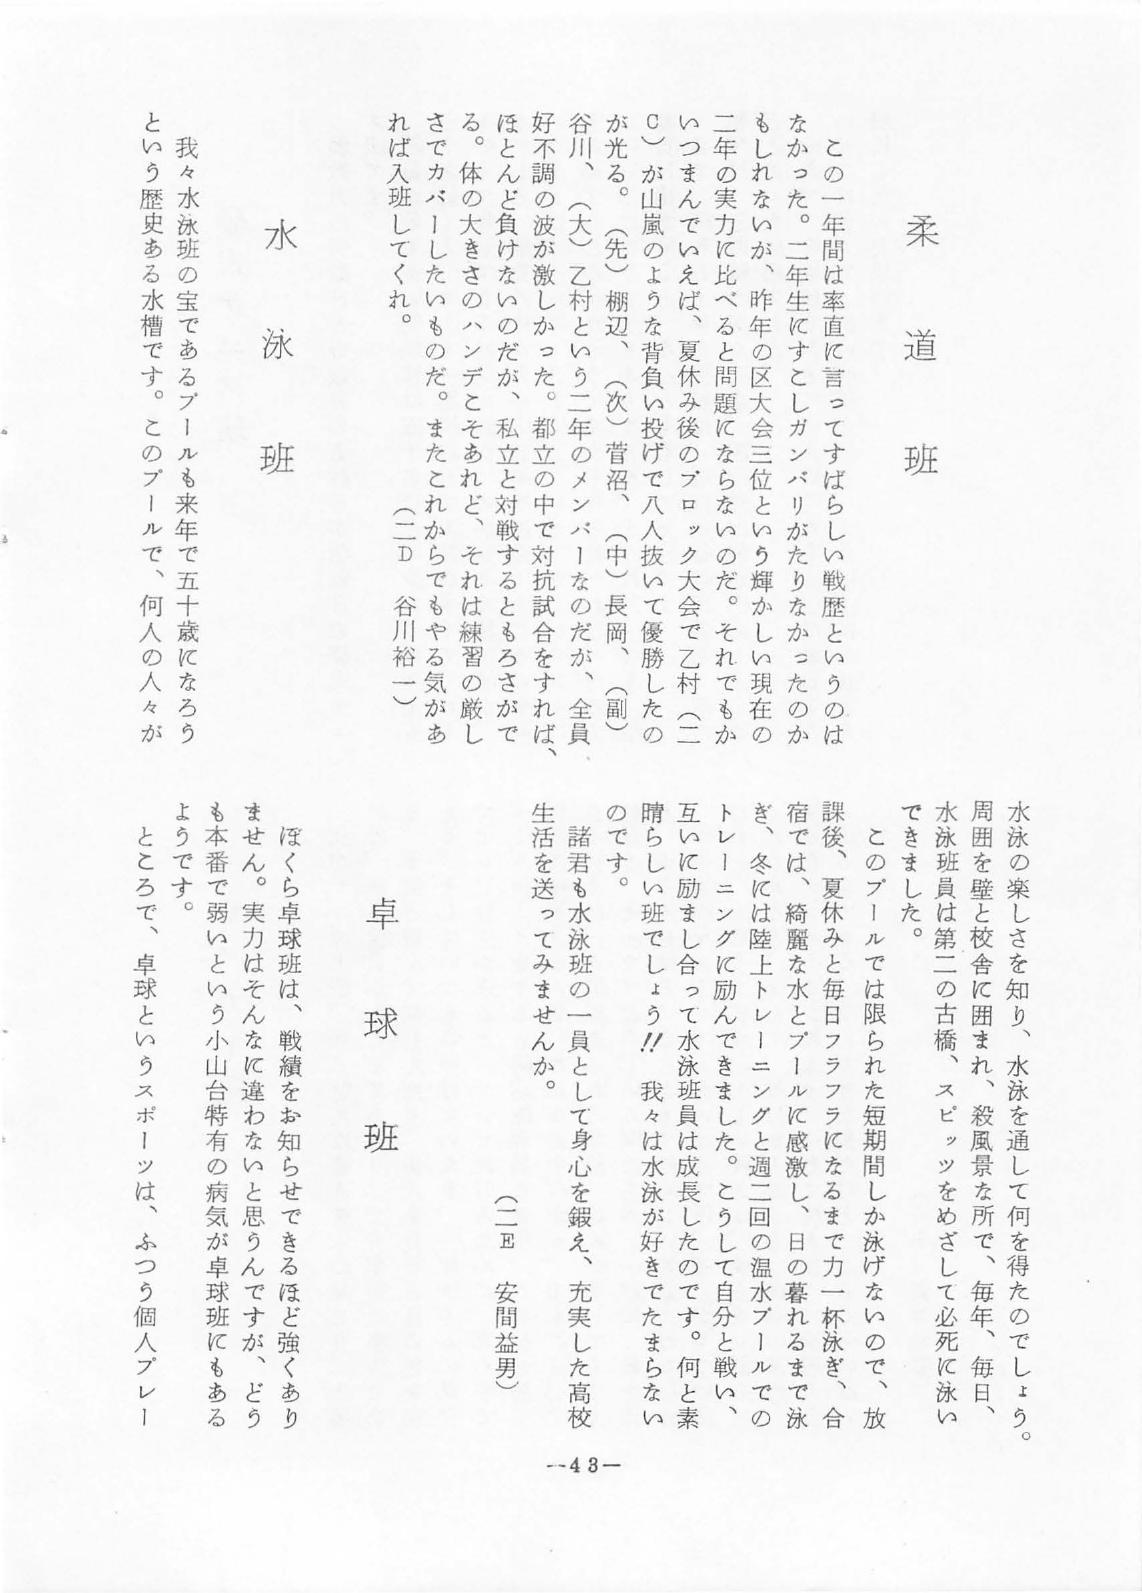 柔道班
この一年間は率直に言ってすばらしい戦歴というのは
なかった。二年生にすこしガンバリがたりなかったのか
もしれないが、昨年の区大会三位という輝かしい現在の
二年の実力に比べると問題にならないのだ。それでもか
いつまんでいえば、夏休み後のブロック大会で乙村（二
C）が山嵐のような背負い投げで八人抜いて優勝したの
が光る。（先）棚辺、（次）菅沼、（中）長岡、（副）
谷川、（大）乙村という二年のメンバーなのだが、全員
好不調の波が激しかった。都立の中で対抗試合をすれば、
ほとんど負けないのだが、私立と対戦するともろさがで
る。体の大きさのハンデこそあれど、それは練習の厳し
さでカバーしたいものだ。またこれからでもやる気があ
れば入班してくれ。
（二D　谷川裕一）
水泳班
我々水泳班の宝であるプールも来年で五十歳になろう
という歴史ある水槽です。このプールで、何人の人々が
水泳の楽しさを知り、水泳を通して何を得たのでしょう。
周囲を壁と校舎に囲まれ、殺風景な所で、毎年、毎日、
水泳班員は第二の古橋、スピッツをめざして必死に泳い
できました。
このプールでは限られた短期間しか泳げないので、放
課後、夏休みと毎日フラフラになるまで力一杯泳ぎ、合
宿では、綺麗な水とプールに感激し、日の暮れるまで泳
ぎ、冬には陸上トレーニングと週二回の温水プールでの
トレーニングに励んできました。こうして自分と戦い、
互いに励まし合って水泳班員は成長したのです。何と素
晴らしい班でしょう!!　我々は水泳が好きでたまらない
のです。
諸君も水泳班の一員として身心を鍛え、充実した高校
生活を送ってみませんか。
（二E　安間益男）
卓球班
ぼくら卓球班は、戦績をお知らせできるほど強くあり
ません。実力はそんなに違わないと思うんですが、どう
も本番で弱いという小山台特有の病気が卓球班にもある
ようです。
ところで、卓球というスポーツは、ふつう個人プレー
—43—